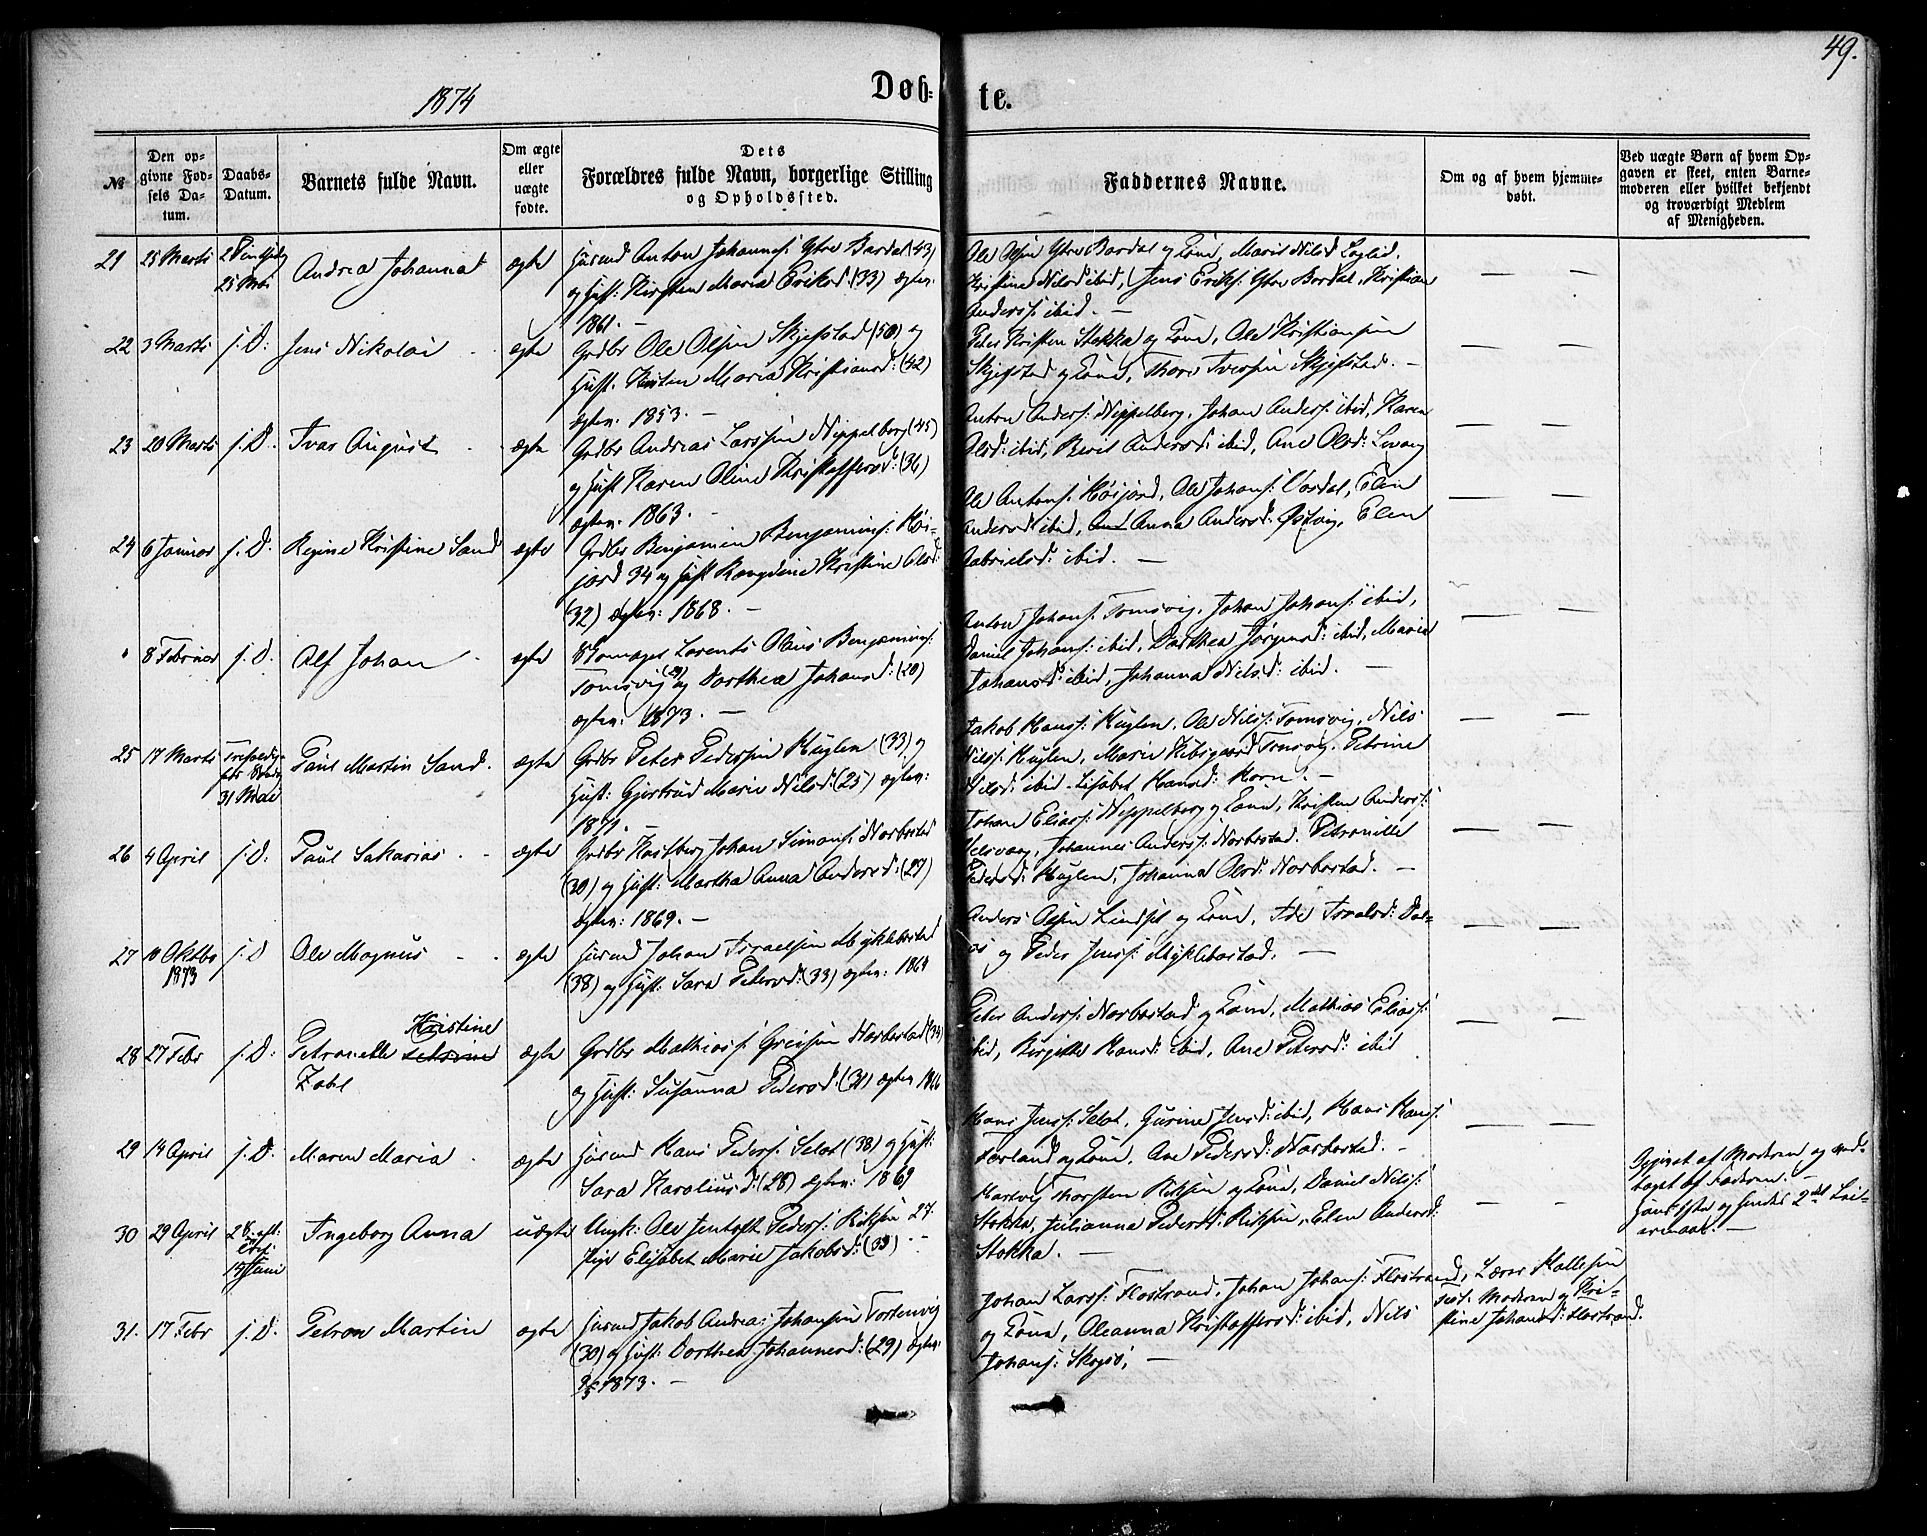 49.
1874
Døb-
te.
№
Den op-
givne Fød-
sels Da-
tum.
Daabs-
Datum.
Barnets fulde Navn.
Om ægte
eller
uægte
fødte.
Dets
Forældres fulde Navn, borgerlige Stilling
og Opholdssted.
Faddernes Navne.
Om og af hvem hjemme-
døbt.
Ved uægte Børn af hvem Op-
gaven er skeet, enten Barne-
moderen eller hvilket bekjendt
og troværdigt Medlem
af Menigheden.
21 25 Marts
25 Mai
Andrea Johanna
ægte
Anton Johannes: Ytre Bardal (43)
og Hust: Kirsten Maria Eriksd: (33) ægtev:
1861. —
Ole Olsen Ytre Bardal og Kone, Marit Nilsd
Kristine Nilsd ibid, Jens Eriks: Ytre Bardal, Kristian
Anders: ibid. —
22 3 Marts j. D: Jens Nikolai ægte
Grdbr Ole Olsen Skjefstad (50) og
Hust. Kirsten Maria Kristiansd: (42)
ægtev. 1853. —
Peter Kristen Stokka og Kone, Ole Kristiansen
Skjefstad og Kone, Iversen Skjefstad. —
23 20 Marts j. D. Ivar August ægte
Grdbr Andreas Larssen Nippelberg (45)
og Hust Karen Oline Kristoffersd: (36)
ægtev. 1863. —
Anton Anders: Nippelberg, Johan Anders: ibid, Karen
Olsd: ibid, Berit Andersd: ibid, Ane Olsd: Levang
24 6 Januar j. D. Regine Kristine Sand ægte
Grdbr Benjamin Benjamins: Høi-
jord 34 og Hust Kristine Olsd:
(32) ægtev: 1868. —
Ole Antons: Høijord, Ole Johans: Vardal, Elen
Andersd ibid, Anna Andersd: Østvig, Elen
Gabrielsd: ibid. —
" 8 Februar j. D. Alf Johan ægte
Lorents Olaus Benjamins:
Tomsvig og Dorthea Johansd: (20)
ægtev: 1873. —
Anton Johans: Tomsvig, Johan Johans: ibid,
Daniel Johans: ibid, Dorthea Jørgensd: ibid, Maria
Johansd: ibid, Johanna Nilsd: ibid. —
25 17 Marts
31 Mai
Paul Martin Sand. ægte
Grdbr Peter Pederssen Huglen (33) og
Hust: Gjertrud Marie Nilsd: (25) ægtev:
1871. —
Jakob Hans: Huglen, Ole Nils: Tomsvig, Nils
Nils: Huglen, Marie Tomsvig, Petrine
Nilsd: ibid. Lisabet Hansd: Horn. —
26 4 April j. D. Paul Sakarias ægte
Grdbr Johan Simons: Norbostad
(30) og Hust: Martha Anna Andersd: (27)
ægtev: 1869. —
Johan Elias: Nippelberg og Kone, Kristen Anders:
Johannes Anders: Norbostad. Petronille
Pedersd: Huglen, Johanna Olsd: Norbostad. —
27 10 Oktbr
1873
j. D Ole Magnus ægte
Johan Israelsen Myklebostad
(38) og Hust: Sara Petersd: (33) ægtev: 1864
Anders Olsen Lindset og Kone,
og Peder Jens: Myklebostad. —
28 27 Febr j. D: Petronelle Kristine
Zahl
ægte
Grdbr Mathias: Greisen Norbostad (34)
og Hust: Susanna Pedersd: (31) ægtev 1866
Peter Anders: Norbostad og Kone, Mathias Elias:
ibid, Birgitte Hansd: ibid, Ane Petersd: ibid
29 14 April j. D. Maren Maria ægte
Hans Peders: Selot (38) og Hust:
Sara Karoliusd: (28) ægtev: 1869
Hans Jens: Selot, Gurine Jensd: ibid, Hans Hans:
Forland og Kone, Ane Pedersd: Norbostad. —
30 29 April
14 Juni
Ingeborg Anna uægte
Ungk: Ole Jentoft Peders: Riksen 27.
Pige Elisabet Marie Jakobsd: (33). —
Hartvig Thorsten Riksen og Kone, Daniel Nils:
Stokka, Julianna Pedersd: Riksen, Elen Andersd:
Stokka. —
Opgivet af Moderen og ved-
taget af Faderen. —
Hans 1ste og hendes 2det Lei-
ermaal. —
31. 17 Febr j. D. Petron Martin ægte
Jakob Andreas Johansen
(30) og Hust: Dorthea Johannesd: (29) ægtev:
1873. —
Johan Lars: Flostrand, Johan Johans: Flostrand,
og Kone, Oleanna Kristoffersd: ibid, Nils
Johans: Skogsø, —
Lærer Kallesen
Moderen og Kri-
stine Johansd: Flostrand.